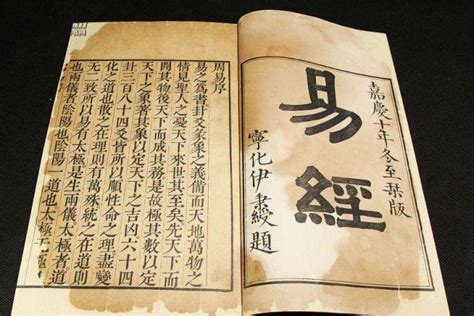 嘉慶十年冬至栞版
易經
寧化伊秉綬題
周易序
易之為書卦爻彖象之義備而天地萬物之
情見聖人之憂天下來世其至矣先天下而
開其物後天下而成其務是故極其數以定
天下之象著其象以定天下之吉凶六十四
卦三百八十四爻皆所以順性命之理盡變
化之道也散之在理則有萬殊統之在道則
無二致所以易有太極是生兩儀太極者道
也兩儀者陰陽也陰陽一道也太極無極